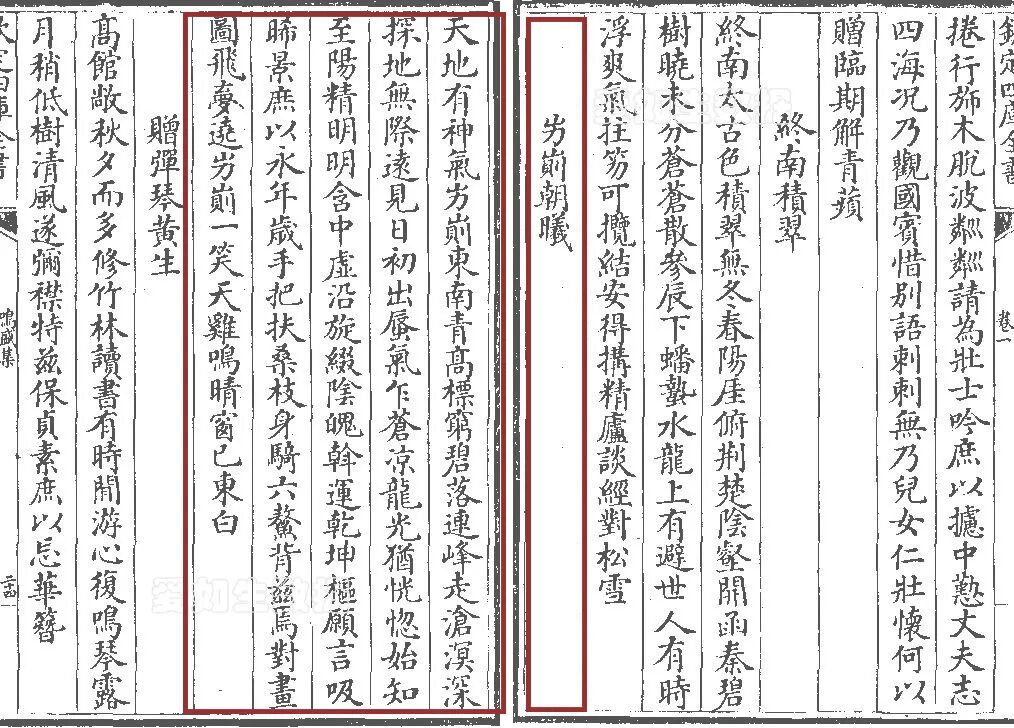 捲行斾木脫波粼粼請為壯士吟庶以攄中懃丈夫志
四海况乃觀國賓惜别語刺刺無乃兒女仁壯懷何以
贈臨期解青蘋
終南積翠
終南太古色積翠無冬春陽厓俯荆楚陰壑開函秦碧
樹曉未分蒼蒼散參辰下蟠蟄水龍上有避世人有時
浮爽氣拄笏可攬結安得搆精廬談經對松雪
屴崱朝曦
天地有神氣屴崱東南青高標窮碧落連峰走滄溟深
探地無際遠見日初出蜃氣乍蒼凉龍光猶恍惚始知
至陽精明明含中虚沿旋綴陰魄斡運乾坤樞願言吸
晞景庶以永年歲手把扶桑枝身騎六鰲背兹焉對畫
圖飛夢遶屴崱一笑天雞鳴晴窗已東白
贈彈琴黄生
高館敞秋夕而多修竹林讀書有時閒游心復鳴琴露
月稍低樹清風遂彌襟特兹保貞素庶以忘華簪
欽定四庫全書
鳴盛集
卷一
二十四